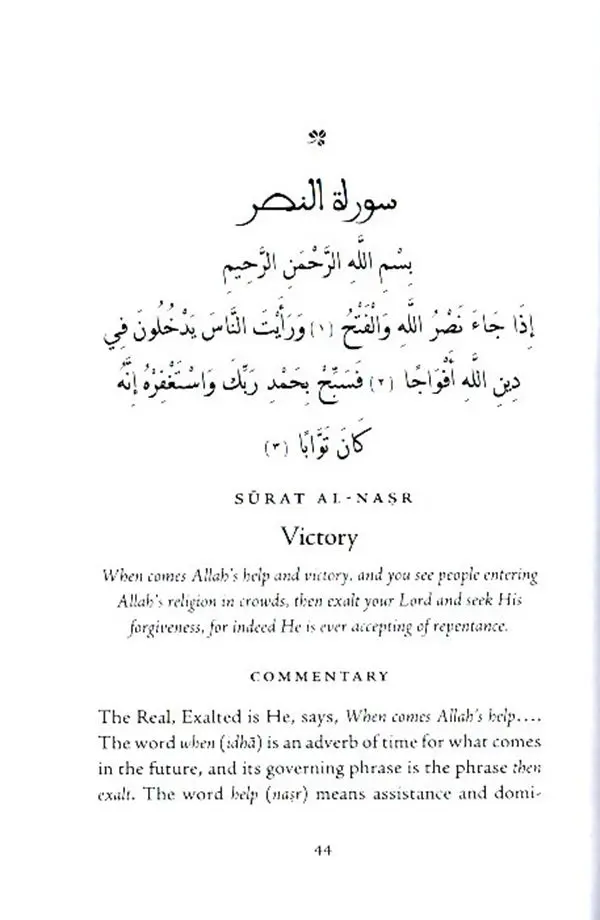 سورة النصر
بِسْمِ اللَّهِ الرَّحْمَنِ الرَّحِيمِ
إِذَا جَاءَ نَصْرُ اللَّهِ وَالْفَتْحُ (١) وَرَأَيْتَ النَّاسَ يَدْخُلُونَ فِي
دِينِ اللَّهِ أَفْوَاجًا (٢) فَسَبِّحْ بِحَمْدِ رَبِّكَ وَاسْتَغْفِرْهُ إِنَّهُ
كَانَ تَوَّابًا (٣)
SŪRAT AL-NAṢR
Victory
When comes Allah's help and victory, and you see people entering
Allah's religion in crowds, then exalt your Lord and seek His
forgiveness, for indeed He is ever accepting of repentance.
COMMENTARY
The Real, Exalted is He, says, When comes Allah's help....
The word when (idhā) is an adverb of time for what comes
in the future, and its governing phrase is the phrase then
exalt. The word help (naṣr) means assistance and domi-
44